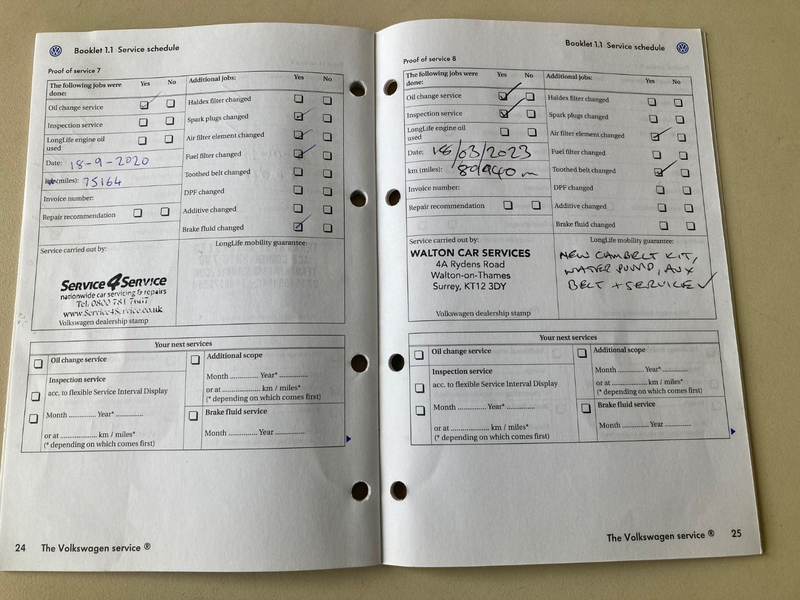 Booklet 1.1 Service schedule
Proof of service 7
The following jobs were done: Yes No
Oil change service
Inspection service
LongLife engine oil used
Date: 18-9-2020
km (miles): 75164
Invoice number:
Repair recommendation
Additional jobs: Yes No
Haldex filter changed
Spark plugs changed
Air filter element changed
Fuel filter changed
Toothed belt changed
DPF changed
Additive changed
Brake fluid changed
Service carried out by:
LongLife mobility guarantee:
SERVICE4SERVICE
nationwide car servicing & repairs
Tel: 0800 781 7667
www.Service4Service.co.uk
Volkswagen dealership stamp
Your next services
Oil change service
Inspection service
acc. to flexible Service Interval Display
Month .............. Year* ..............
or at .................. km / miles*
(* depending on which comes first)
Additional scope
Month .............. Year* ..............
or at .................. km / miles*
(* depending on which comes first)
Brake fluid service
Month .............. Year ..............
24 The Volkswagen service ®
Booklet 1.1 Service schedule
Proof of service 8
The following jobs were done: Yes No
Oil change service
Inspection service
LongLife engine oil used
Date: 18/03/2023
km (miles):
Invoice number:
Repair recommendation
Additional jobs: Yes No
Haldex filter changed
Spark plugs changed
Air filter element changed
Fuel filter changed
Toothed belt changed
DPF changed
Additive changed
Brake fluid changed
Service carried out by:
WALTON CAR SERVICES
4A Rydens Road
Walton-on-Thames
Surrey, KT12 3DY
Volkswagen dealership stamp
LongLife mobility guarantee:
NEW CAMBELT KIT,
WATER PUMP, AUX
BELT + SERVICE
Your next services
Oil change service
Inspection service
acc. to flexible Service Interval Display
Month .............. Year* ..............
or at .................. km / miles*
(* depending on which comes first)
Additional scope
Month .............. Year* ..............
or at .................. km / miles*
(* depending on which comes first)
Brake fluid service
Month .............. Year ..............
The Volkswagen service ® 25